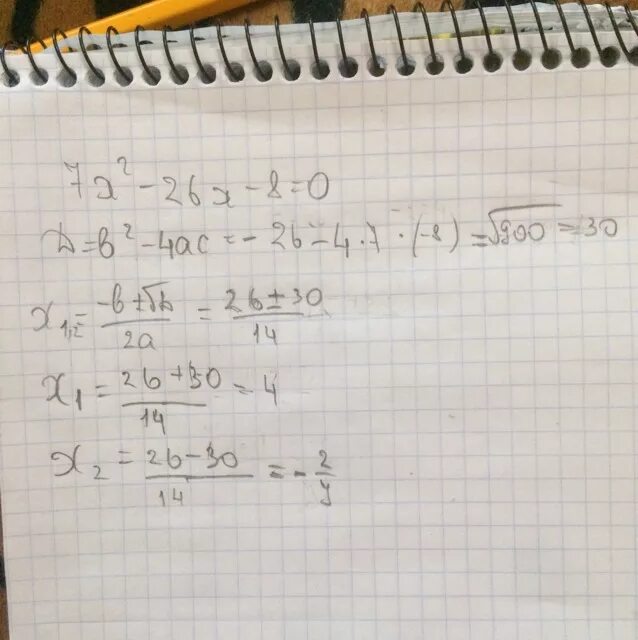 7x² - 26x - 8 = 0
D = b² - 4ac = - 26 - 4 · 7 · (-8) = √900 = 30
x₁,₂ = (-b ± √D)/(2a) = (26 ± 30)/14
x₁ = (26 + 30)/14 = 4
x₂ = (26 - 30)/14 = - 2/7